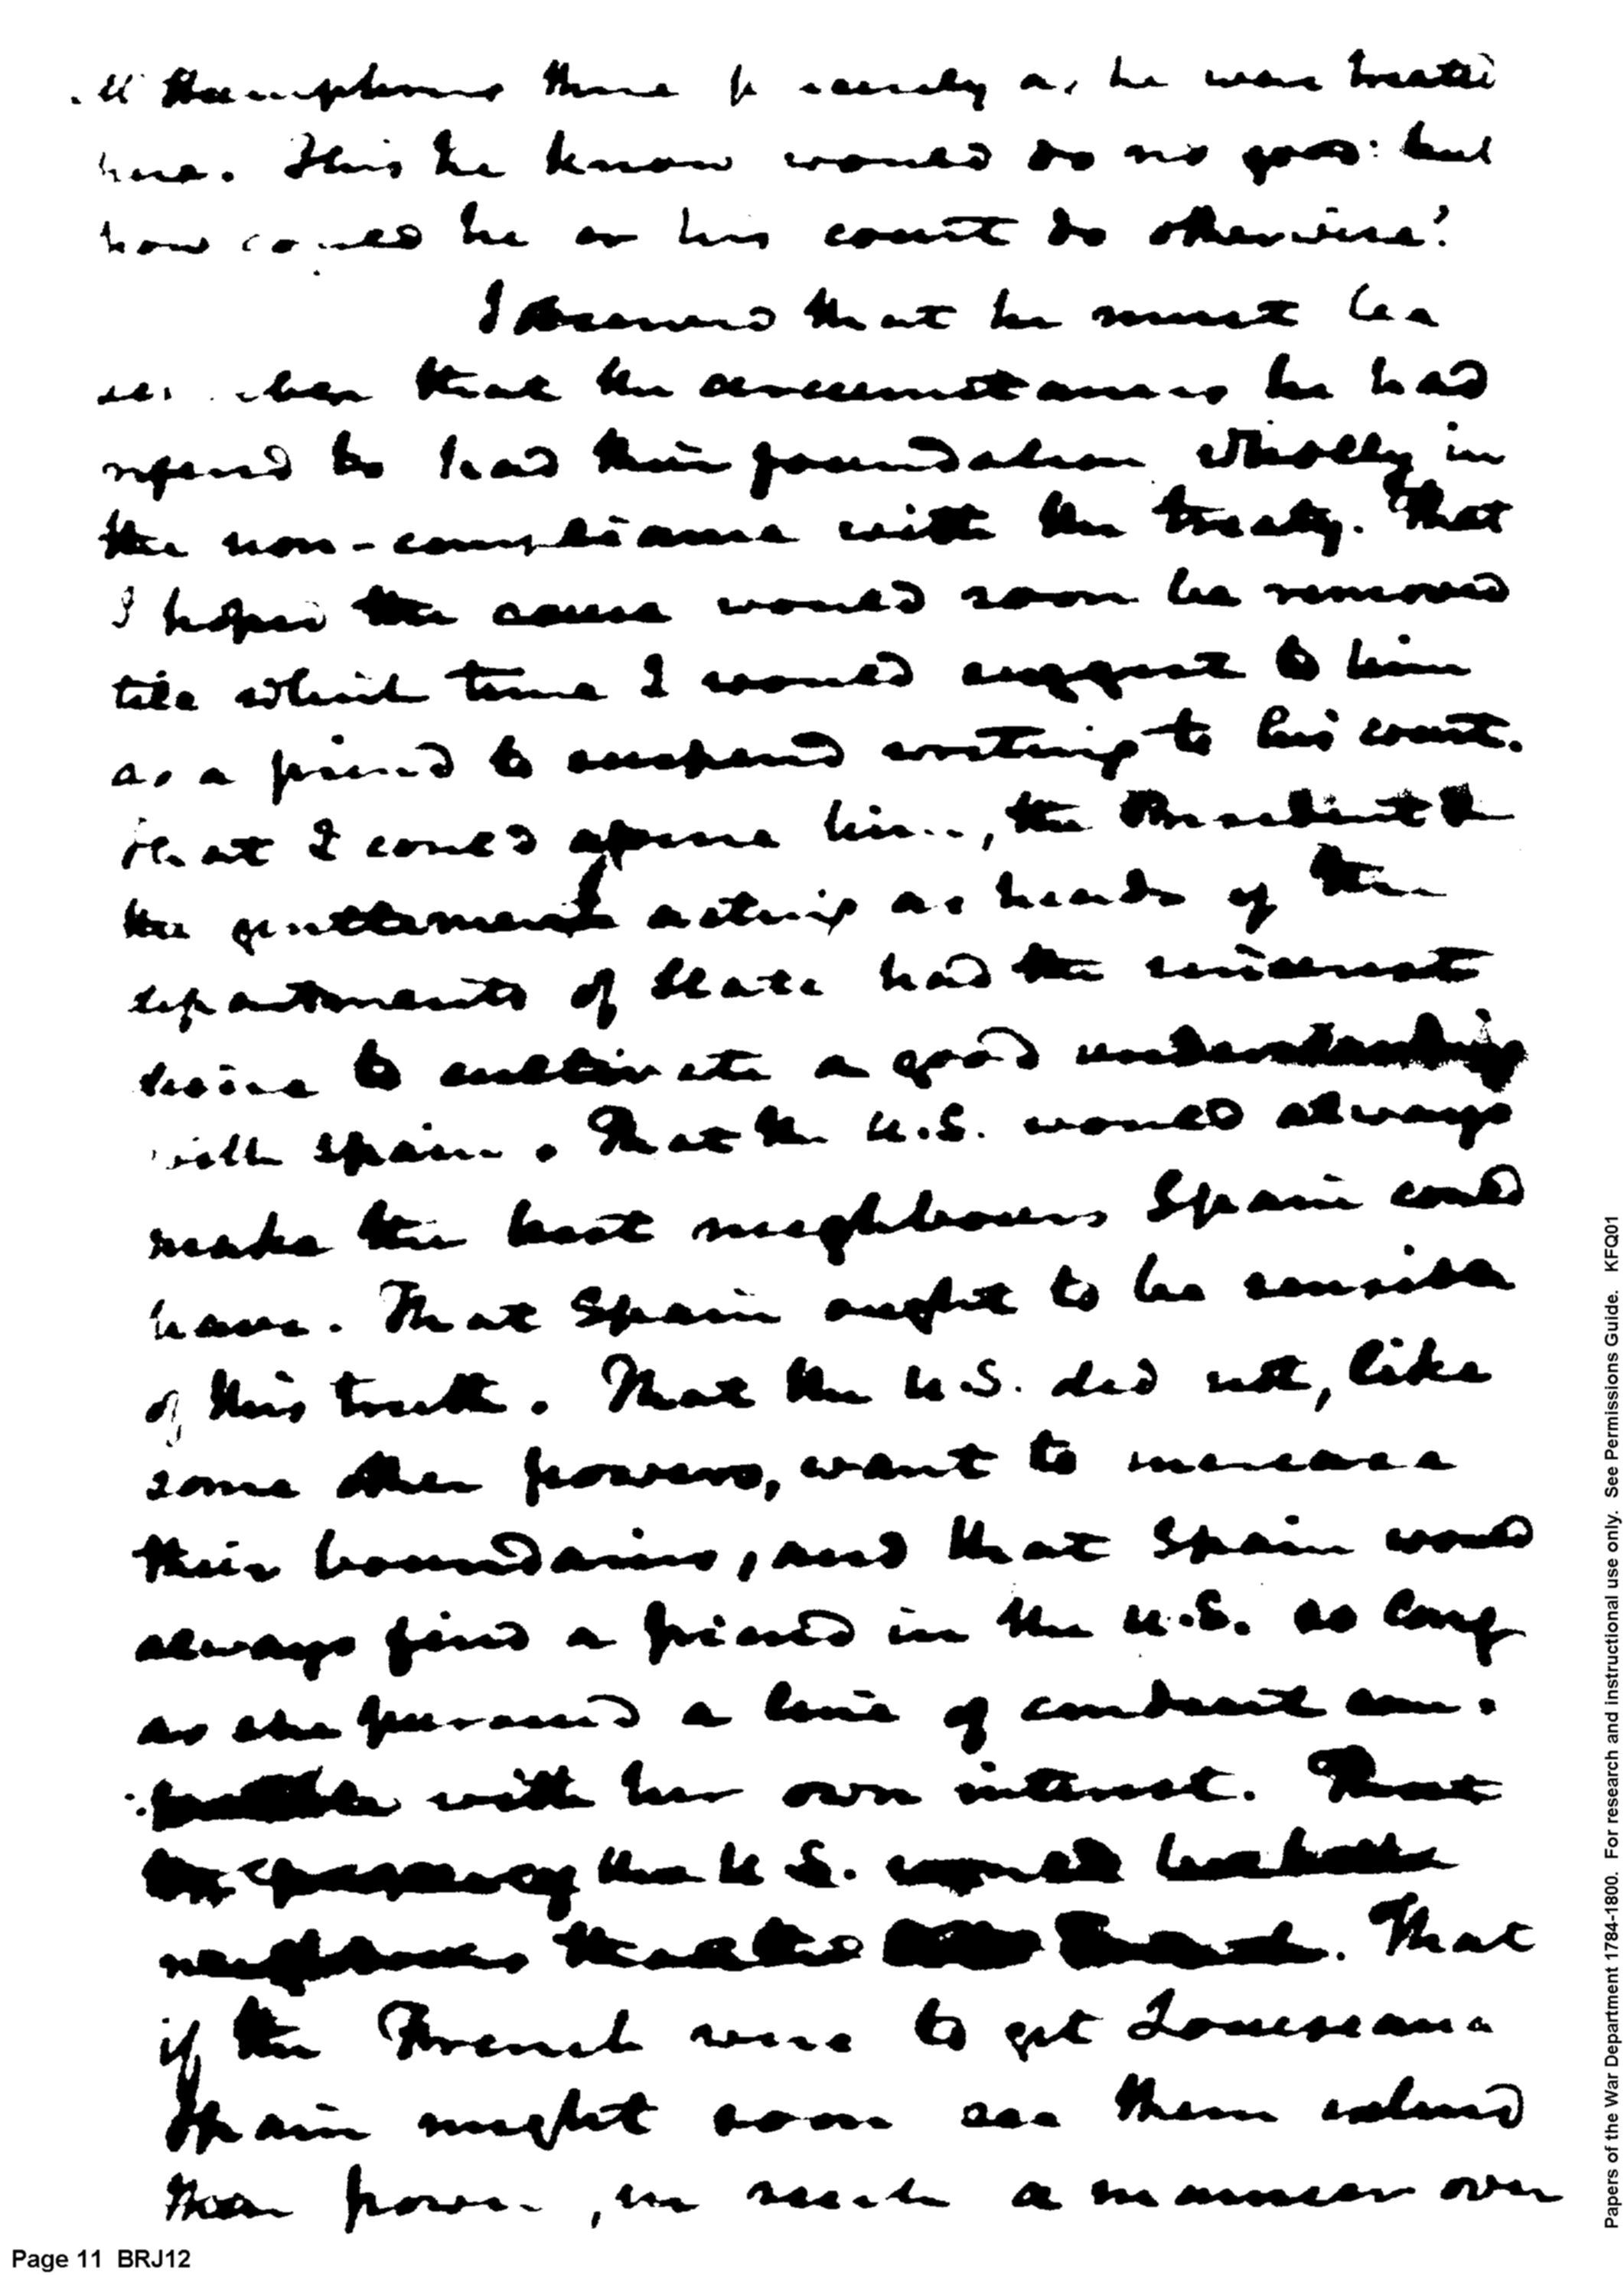 Humphreys there precisely as he was treated
here. This he knew would do no good: but
how could he or his court do otherwise?
I observed that he must be
sensible that the circumstances he had
refered to had their foundation wholly in
the non-compliance with the treaty. That
I hoped the cause would soon be removed
till which time I would suggest to him
as a friend to suspend writing to his court.
that I could assure him, the President &
the gentlemen acting as heads of the
departments of State had the sincerest
desire to cultivate a good understanding
with Spain. That the U.S. would always
make the best neighbours Spain could
have. That Spain ought to be sensible
of this truth. That the U.S. did not, like
some other powers, want to increase
their boundaries, and that Spain would
always find a friend in the U.S. so long
as she pursued a line of conduct com:
:patible with her own interest. That
the U.S. would be better
neighbours than the French. That
if the French were to get Louiseana
Spain might soon see them extend
their power, in such a manner over
Page 11 BRJ12
Papers of the War Department 1784-1800. For research and instructional use only. See Permissions Guide. KFQ01